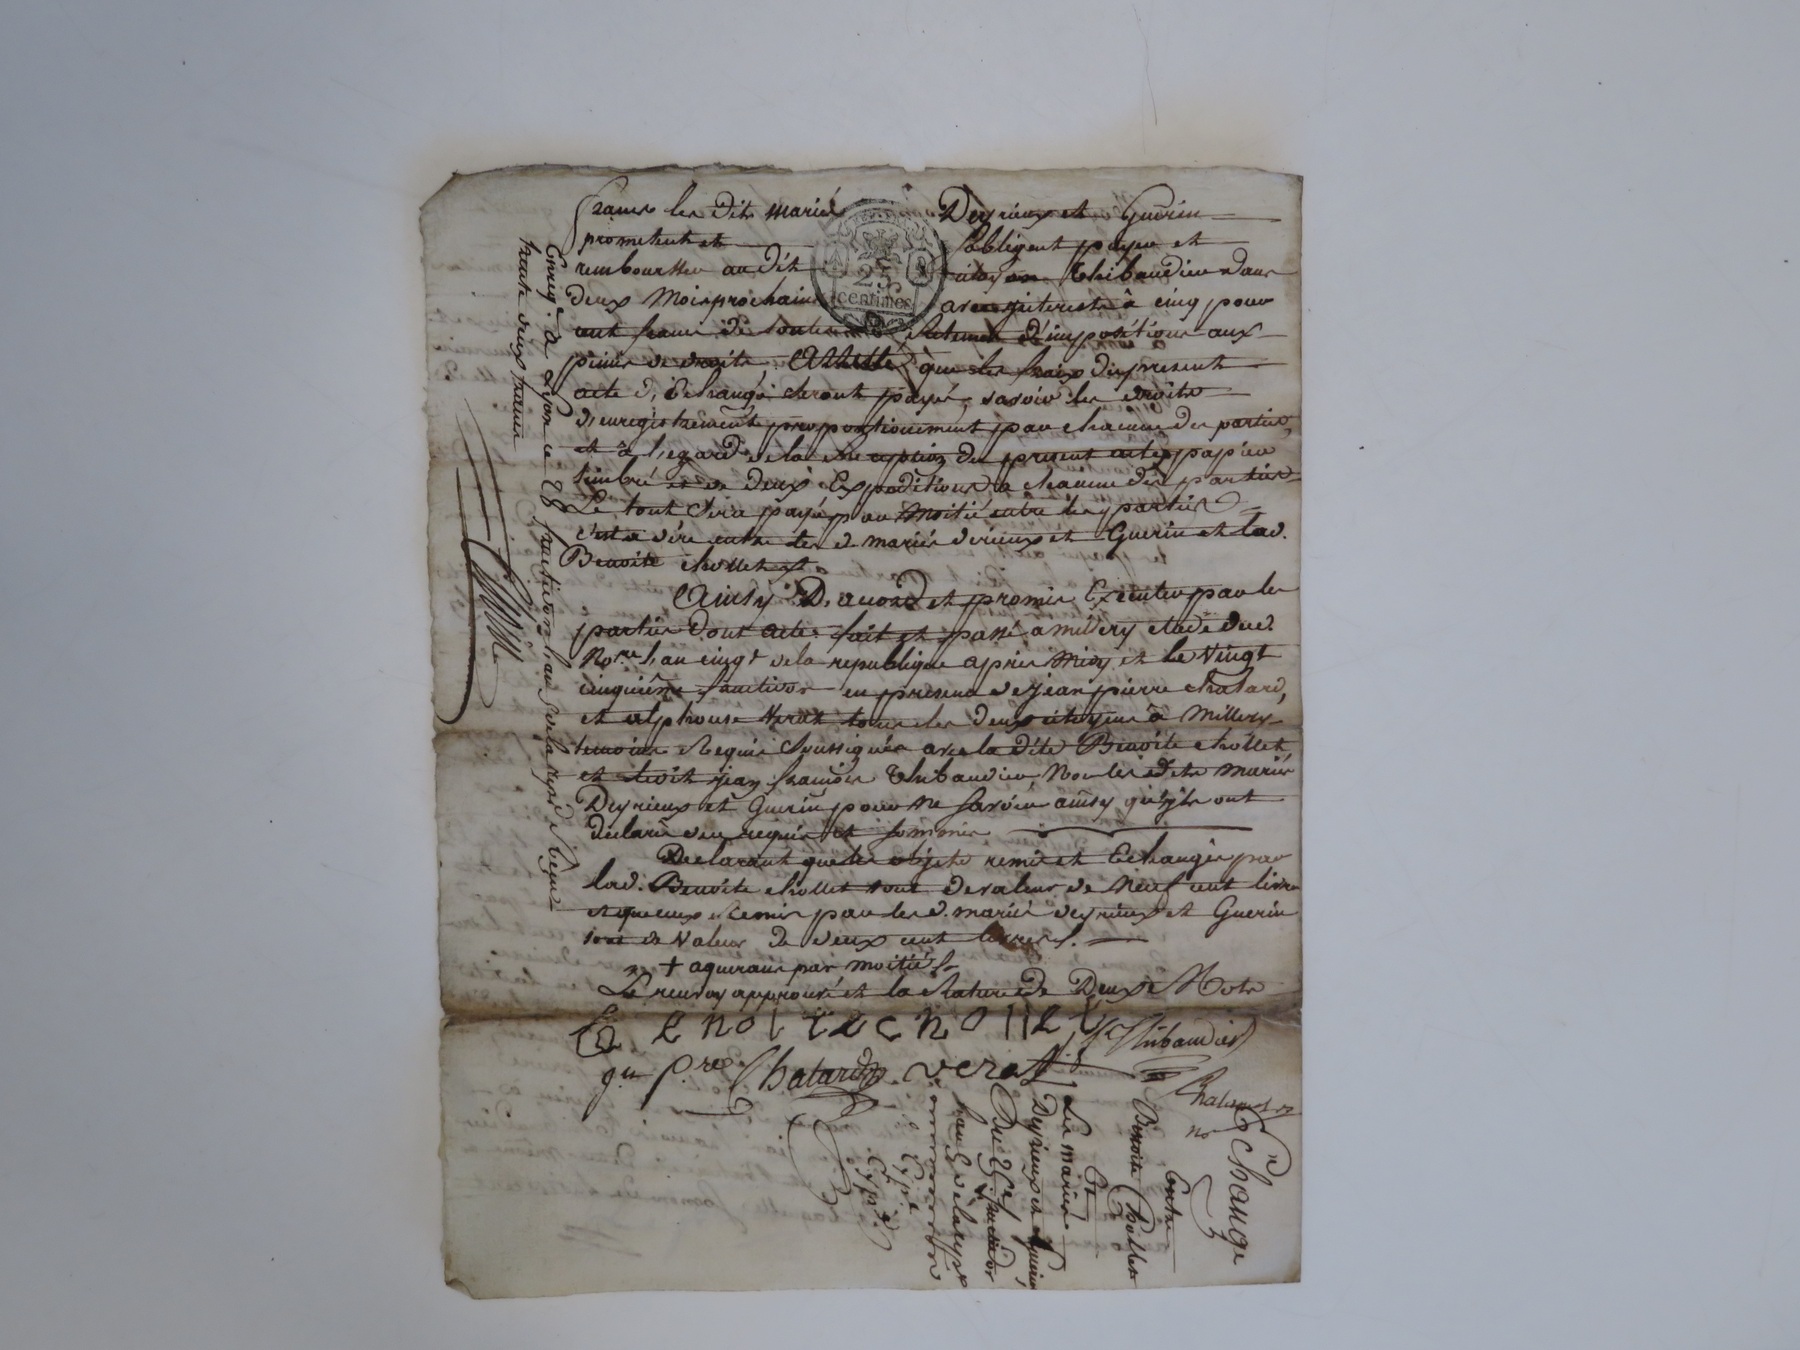 francs les dits mariés Deyrieux et Guerin
promettent et s'obligent payer et
rembourser au dit citoyen Thibaudier dans
deux Mois prochain avec interests à cinq pour
cent francs de toute Retenue d'impositions aux
peines de droits, Arretté que les fraix du present
acte d'Echange seront payés, savoir les droits
d'enregistrement proportionement par chacune des parties,
et à l'egard de la du present acte papier
timbré et de deux Expeditions a chacune des parties
Le tout sera payé par Moitié entre les parties
c'est a dire entre les d. mariés derieux et Guerin et lad.
Benoite chollet
Ainsy D'acord et promis Executer par les
parties dont acte fait et passé a millery etude dud.
No.re l'an cinq.e de la republique après Midy et le Vingt
cinquième fructidor en presence de jean pierre chatard,
et alphonse Verat tous les deux citoyens à Millery
temoins Requis soussignés avec la dite Benoite chollet,
et ledit jean françois Thibaudier, Non les dits mariés
Deyrieux et Guerin pour ne savoir ainsy qu'ils ont
déclaré de ce requis et sommés
Declarant que les objets remis et Echangés par
lad. Benoite chollet sont de valeur de Neuf cent livres
et que ceux Remis par les d. mariés deyrieux et Guerin
sont de Valeur de deux cent livres
+ aquerans par moitié
Le renvoy approuvé et la Rature de Deux Mots
Be noitechollet
Thibaudier
jn p.re Chatard verat
Chaland
no
Enreg. à Lyon ce 28 fructidor l'an 5 de la rep.
trente deux francs
Echange
Entre
Benoite Chollet
Et
Les mariés
Deyrieux et Guerin
Du 25 fructidor
l'an 5 de la rep.
Exp.é
Exp.é
25
centimes